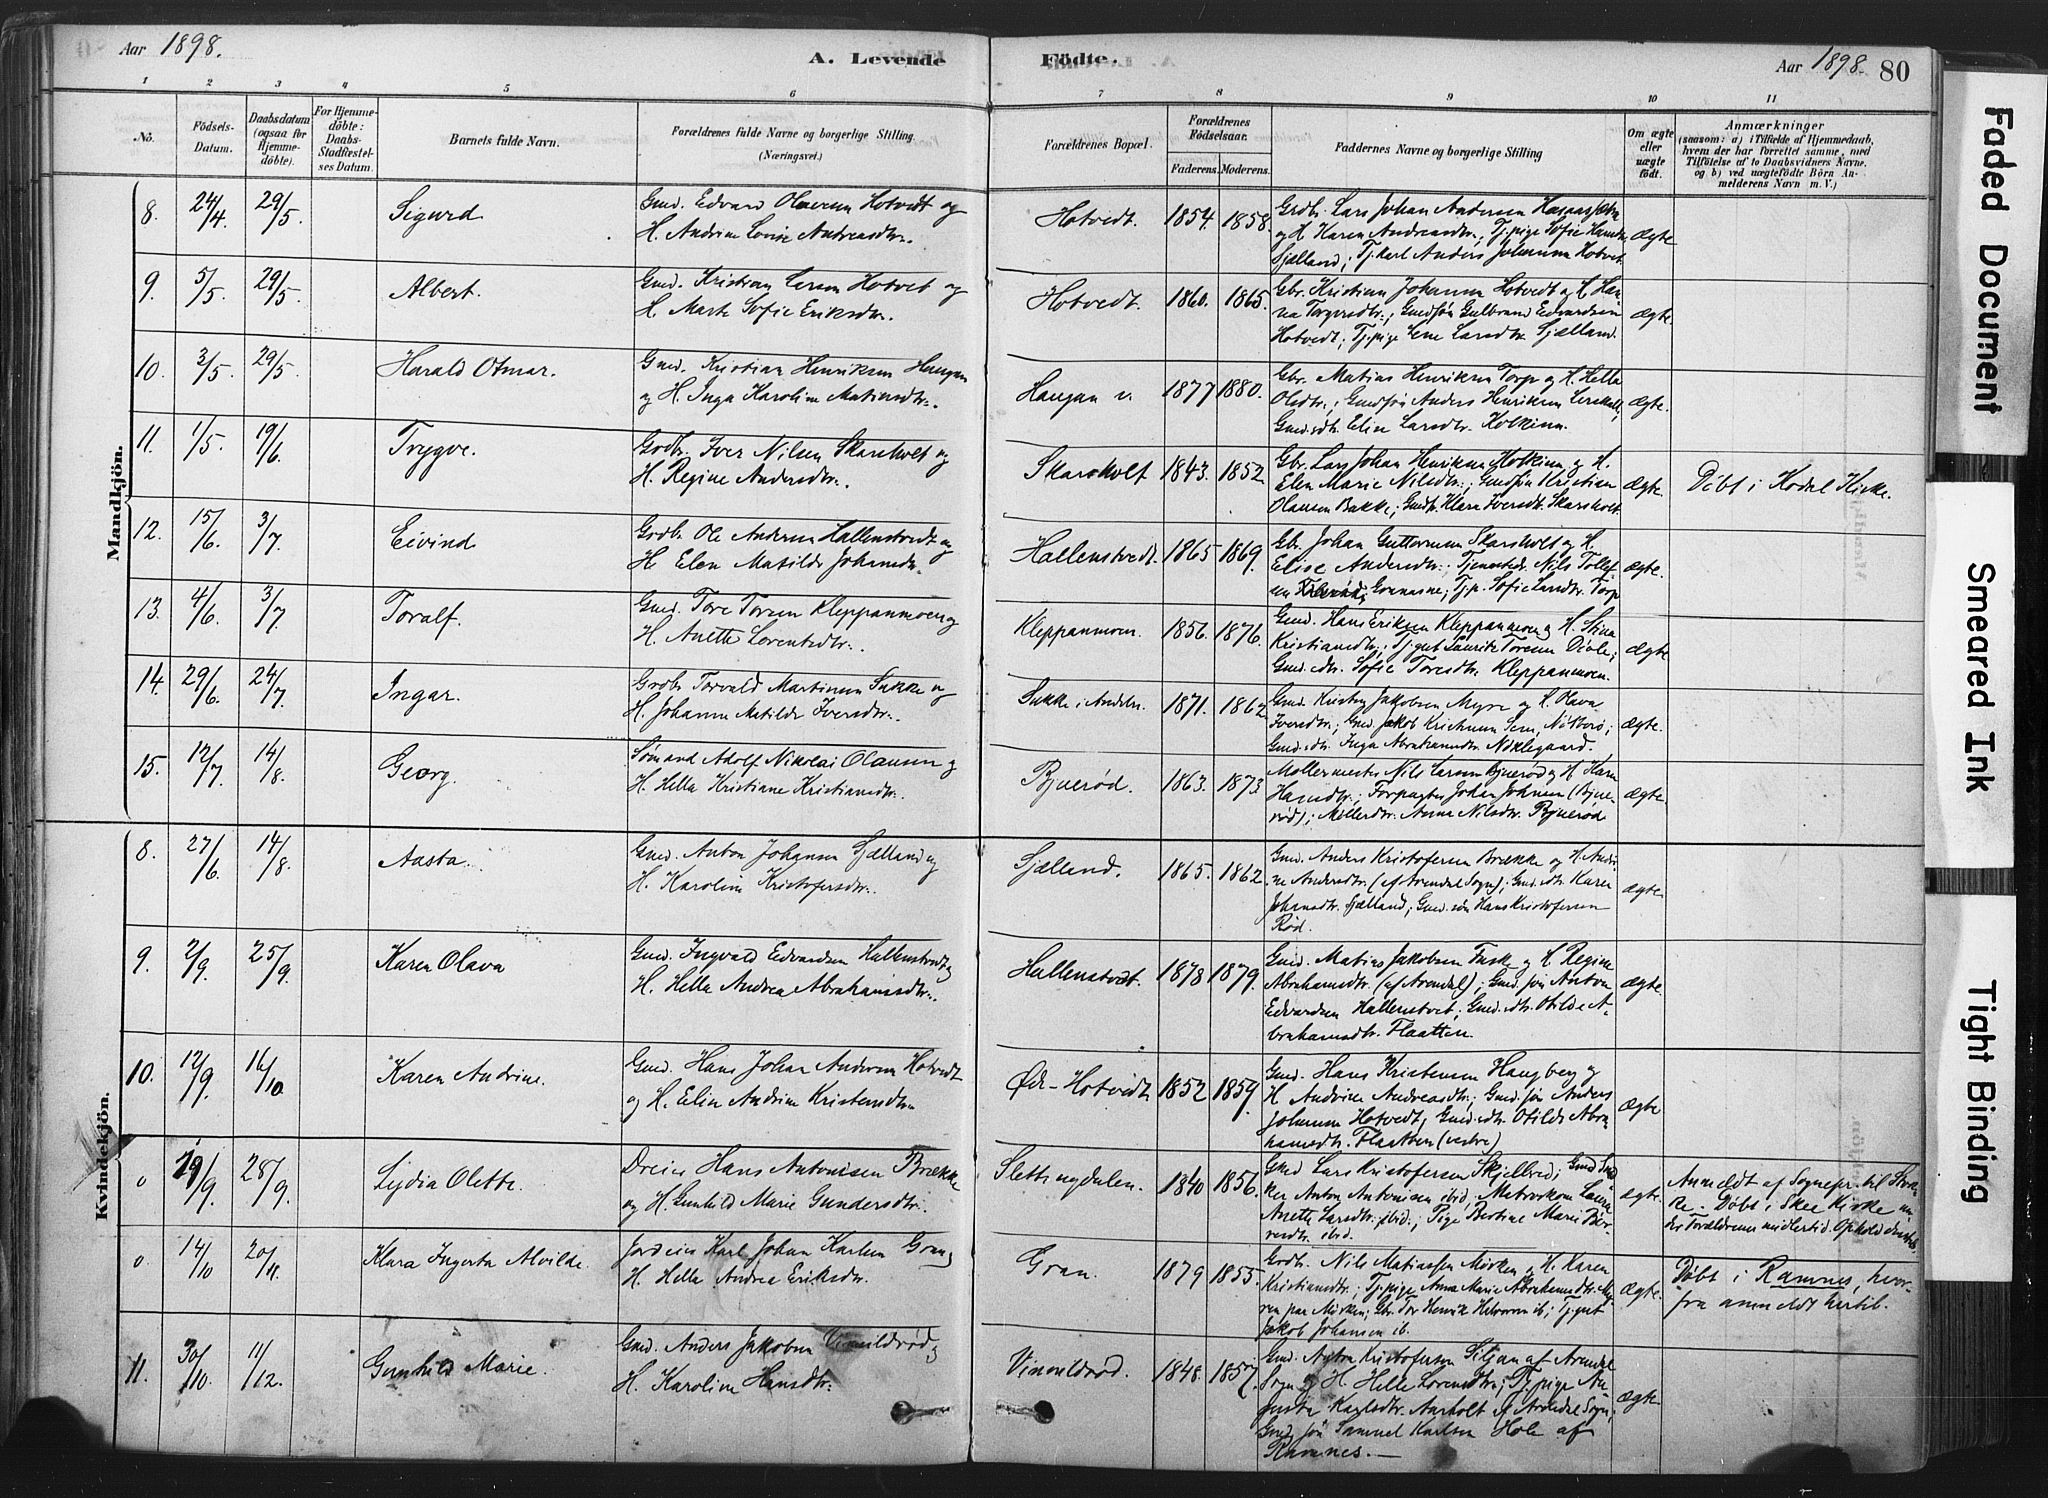 Aar 1898.
A. Levende
Födte.
Aar 1898.
80
1 2 3 4 5 6 7 8 9 10 11
No.
Födsels-Datum.
Daabsdatum (ogsaa for Hjemmedöbte).
For Hjemmedöbte: Daabs-Stadfæstelses Datum.
Barnets fulde Navn.
Forældrenes fulde Navne og borgerlige Stilling. (Næringsvei.)
Forældrenes Bopæl.
Forældrenes Födselsaar.
Faderens. Moderens.
Faddernes Navne og borgerlige Stilling
Om ægte eller uægte födt.
Anmærkninger
(saasom: a) i Tilfælde af Hjemmedaab, hvem der har forrettet samme, med Tilföielse af to Daabsvidners Navne, og b) ved uægtefödte Börn Anmelderens Navn m. V.)
Mandkjön.
8. 24/4 29/5. Sigurd
Gmd. Edvard Olavesen Hotvedt og
H. Andrine Lovise Andreasdtr.
Hotvedt. 1854. 1858.
Grdb. Lars Johan Andersen
og H. Karen Andreasdtr.; Tj.pige Sofie Hansdr.
Sjælland; Tj.karl Anders Johannsen Hotvet.
ægte
9. 5/5. 29/5. Albert.
Gmd. Kristian Larsen Hotvet og
H. Marte Sofie Eriksdtr.
Hotvedt. 1860. 1865.
Gbr. Kristian Johansen Hotvedt og H. Han-
na Torgersdtr.; Gmdsøn Gulbrand Edvardsen
Hotvedt; Tj.pige Lene Larsdtr. Sjælland.
ægte.
10. 3/5. 29/5. Harald Otmar.
Gmd. Kristian Henriksen Haugan
og H. Inga Karoline Matiasdtr.
Haugan v. 1877 1880.
Gbr. Matias Henriksen Torp og H. Hella
Olsdtr.; Gmdsøn Anders Henriksen
Gmd.sdtr. Elise Larsdtr. Kolkinn.
ægte.
11. 1/5. 19/6. Trygve.
Grdbr. Iver Nilsen Skarsholt og
H. Regine Andersdtr.
Skarsholt 1843. 1852
Gbr. Lars Johan Henriksen Kolkinn og H.
Elen Marie Nilsdtr.; Gmdsøn Kristian
Olausen Bakke; Gmdtr. Klara Iversdtr. Skarsholt.
ægte.
Døbt i Kodal Kirke.
12. 15/6. 3/7. Eivind
Grdbr. Ole Andersen Hallenstvedt og
H. Elen Matilde Johansdtr.
Hallenstvedt. 1865 1869.
Gb. Johan Guttormsen Skarsholt og H.
Elise Andersdtr.; Tjenestedr. Nils Tollef
sen; Tj.p. Sofie Larsdtr. Torp
ægte.
13. 4/6. 3/7. Toralf.
Gmd. Tore Torsen Kleppanmoen og
H. Anette Lorentsdtr.
Kleppanmoen. 1856. 1876.
Gmd. Hans Eriksen Kleppanmoen og H. Stina
Kristiansdtr.; Tj.gut Laurits Toresen
Gmd.sdtr. Sofie Toresdtr. Kleppanmoen.
ægte
14. 29/6. 24/7. Ingar.
Grdbr. Torvald Martinsen Sukke og
H. Johanne Matilde Iversdtr.
Sukke i Andebu. 1871. 1862
Gmd. Jakobsen Myre og H. Olava
Iversdtr.; Gmd. Jakob Kristiansen Sem, Nøtterø;
Gmd.sdtr. Inga Abrahamsdtr. Niklegaard.
ægte.
15. 12/7. 14/8. Georg.
Sømand Adolf Nikolai Olausen og
H. Hella Kristiane Kristiansdtr.
Bjuerød. 1863. 1873
Møllermester Nils Larsen Bjuerød og H. Karen
Hansdtr.; Forpagter Johan Johnsen (Bjue-
rød); Møllersdtr. Anna Nilsdtr. Bjuerød
ægte.
Kvindekjön.
8. 27/6. 14/8. Aasta.
Gmd. Anton Johansen Sjælland og
H. Karoline Kristofersdtr.
Sjælland. 1865. 1862
Gmd. Anders Kristofersen Brække og H. Andri-
ne Andersdtr. (af Arendal Sogn); Gmd.sdtr. Karen
Johansdtr. Sjælland; Gmd.søn Hans Kristofersen
Rød.
ægte.
9. 2/9. 25/9. Karen Olava
Gmd. Ingvald Edvardsen Hallenstvedt og
H. Hella Andrea Abrahamsdtr.
Hallenstvedt. 1878 1879.
Gmd. Matias Jakobsen Fuske og H. Regine
Abrahamsdtr. (af Arendal); Gmd.søn Anton
Edvardsen Hallenstvet; Gmd.sdtr. Otilde A-
brahamsdtr. Flaatten.
ægte.
10. 12/9. 16/10. Karen Andrine.
Gmd. Hans Johan Andersen Hotvedt
og H. Elise Andrine Kristensdtr.
Ødr-Hotvedt. 1852 1859.
Gmd. Hans Kristensen Haugberg og
H. Andrine Andreasdtr.; Gmd.søn Anders
Johansen Hotvedt; Gmd.sdtr. Otilde Abra-
hamsdtr. Flaatten (vestre)
ægte.
0 19/9. 28/9. Lydia Olette.
Dreier Hans Antonisen Brække
og H. Gunhild Marie Gundersdtr.
Slettingdalen. 1840 1856.
Gmd Lars Kristofersen Skjelbred; Gmd
Anton Antonisen ibid, Matroskone Laura
Anette Larsdtr. ibid.; Pige Bertine Marie
ibid.
ægte.
Anmeldt af Sognepr. til Stok-
ke. Døbt i Skee Kirke un-
der Forældrenes midlertid. Ophold
0 14/10 20/11. Klara Ingerta Alvilde.
Jordeier Karl Johan Karlsen Gran og
H. Hella Andrea Eriksdtr.
Gran. 1879 1855.
Grdb. Nils Matiassen Mørken og H. Karen
Kristiansdtr.; Tj.pige Anna Marie Abrahamsdtr.
Mørken; Gbr. Tor Henrik Halvorsen ib; Tj.gut
Jakob Johansen ib.
ægte.
Døbt i Ramnes, hvor-
fra anmeldt hertil.
11. 30/10. 11/12. Gunhild Marie.
Gmd. Anders Jakobsen Vinuldrød og
H. Karoline Hansdtr.
Vinuldrød. 1848. 1857.
Gmd. Anton Kristofersen af Arendal
Sogn og H. Helle Lorensdtr.; Tj.pige Au-
gusta Karlsdtr. Aarholt af Arendal Sogn,
Gmd.søn Samuel Karlsen Hole af
Ramnes.
ægte.
Faded Document
Smeared Ink
Tight Binding